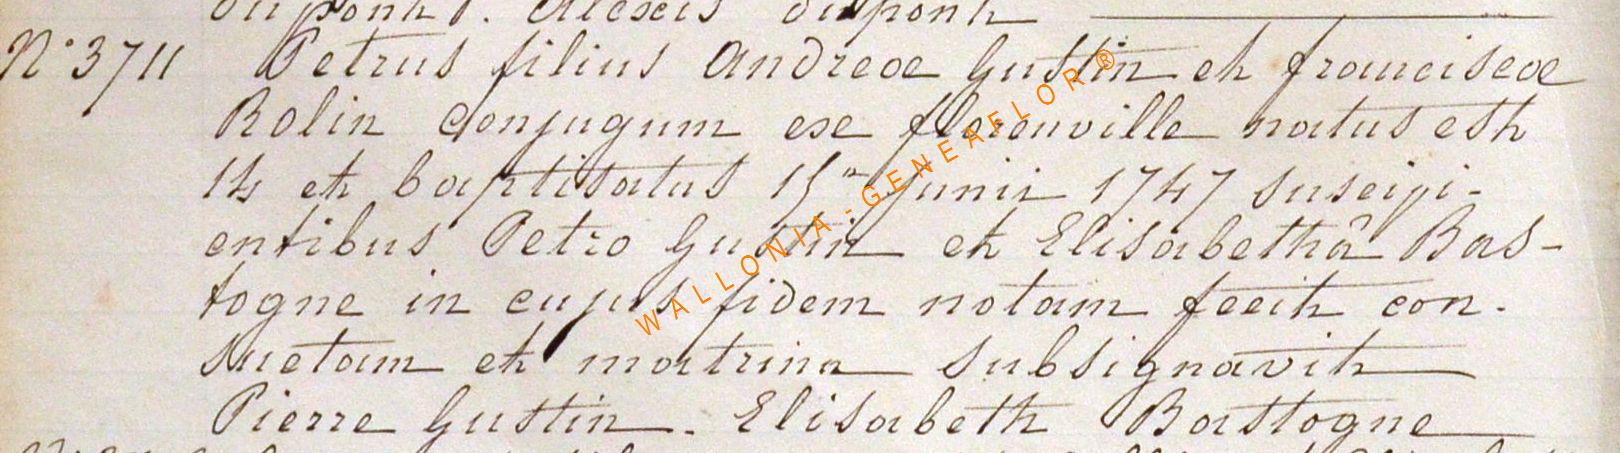 dupont. Alexis dupont
N° 3711 Petrus filius Andreae Gustin et franciscae
Rolin conjugum ex florenville natus est
14 et baptisatus 15ª junii 1747 suscipi-
entibus Petro Gustin et Elisabethâ Bas-
togne in cujus fidem notam fecit con-
suetam et matrina subsignavit
Pierre Gustin. Elisabeth Bastogne
WALLONIA-GENEAFLOR®